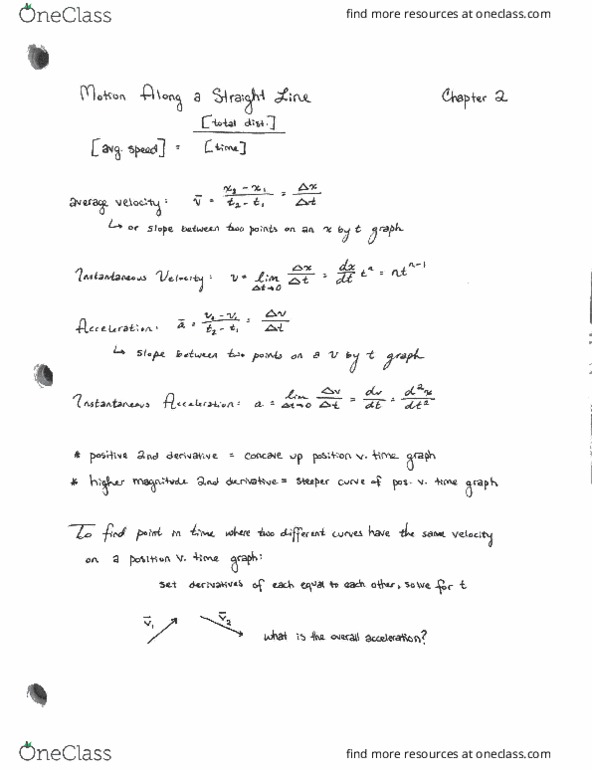 OneClass
find more resources at oneclass.com
Motion Along a Straight Line Chapter 2
[avg. speed] = [total dist.] / [time]
average velocity: v̄ = x₂ - x₁ / t₂ - t₁ = Δx / Δt
↳ or slope between two points on an x by t graph
Instantaneous Velocity: v = lim Δt→0 Δx / Δt = dx / dt tⁿ = ntⁿ⁻¹
Acceleration: ā = v₂ - v₁ / t₂ - t₁ = Δv / Δt
↳ slope between two points on a v by t graph
Instantaneous Acceleration: a = lim Δt→0 Δv / Δt = dv / dt = d²x / dt²
* positive 2nd derivative = concave up position v. time graph
* higher magnitude 2nd derivative = steeper curve of pos. v. time graph
To find point in time where two different curves have the same velocity
on a position v. time graph:
set derivatives of each equal to each other, solve for t
v̄₁ v̄₂ what is the overall acceleration?
OneClass
find more resources at oneclass.com